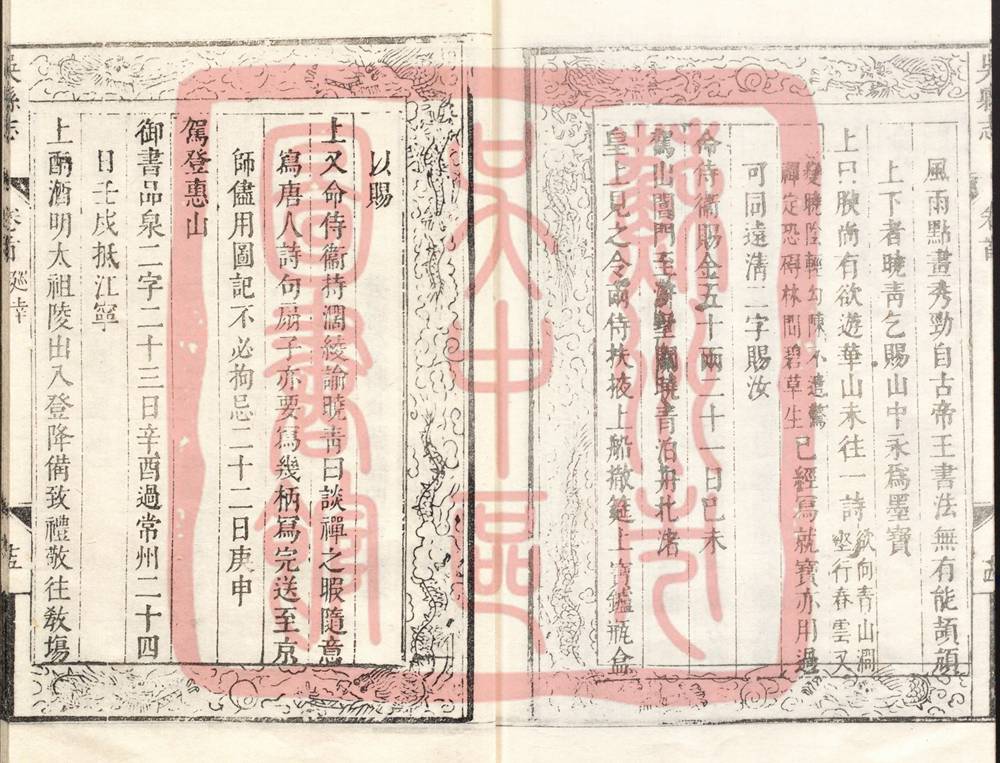 吳縣志
卷首
風雨點畫秀勁自古帝王書法無有能頡頏
上下者曉青乞賜山中永爲墨寶
上曰朕尚有欲遊華山未往一詩欲向青山澗壑行春雲又
變曉陰輕勾陳不遣驚禪定恐碍林間碧草生已經寫就寶亦用過
可同遠清二字賜汝
命侍衞賜金五十兩二十一日己未
駕出閶門至滸墅關曉青泊舟北渚
皇上見之令兩侍扶掖上船撤筵上寶鑪瓶盒
以賜
上又命侍衞持濶綾諭曉青曰談禪之暇隨意
寫唐人詩句扇子亦要寫幾柄寫完送至京
師儘用圖記不必拘忌二十二日庚申
駕登惠山
御書品泉二字二十三日辛酉過常州二十四
日壬戌抵江寧
上酹酒明太祖陵出入登降備致禮敬往敎塲
吳縣志
卷首
巡幸